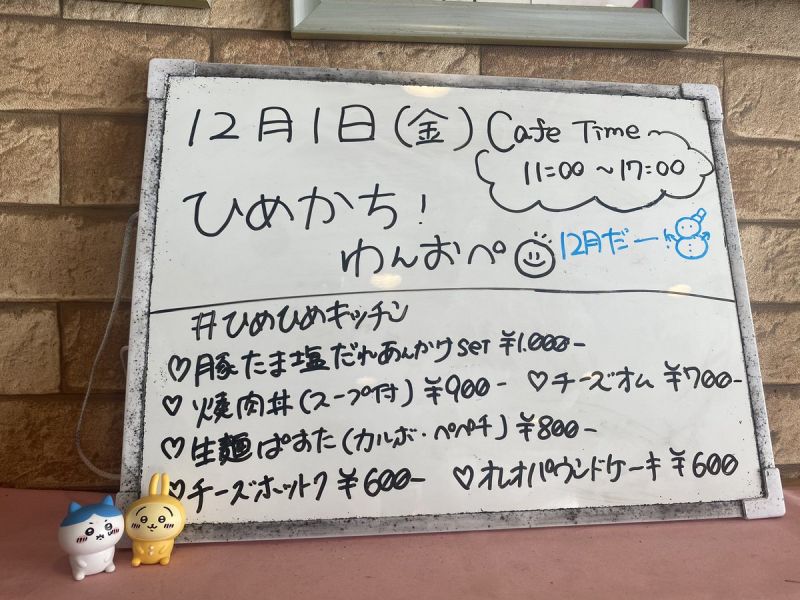 12月1日(金) Cafe Time〜
11:00 〜 17:00
ひめかち!
わんおぺ
12月だー!
#ひめひめキッチン
♡豚たま塩だれあんかけset ¥1.000-
♡焼肉丼(スープ付) ¥900- ♡チーズオム ¥700-
♡生麺ぱすた(カルボ・ペペチ) ¥800-
♡チーズホットク ¥600- ♡オレオパウンドケーキ ¥600